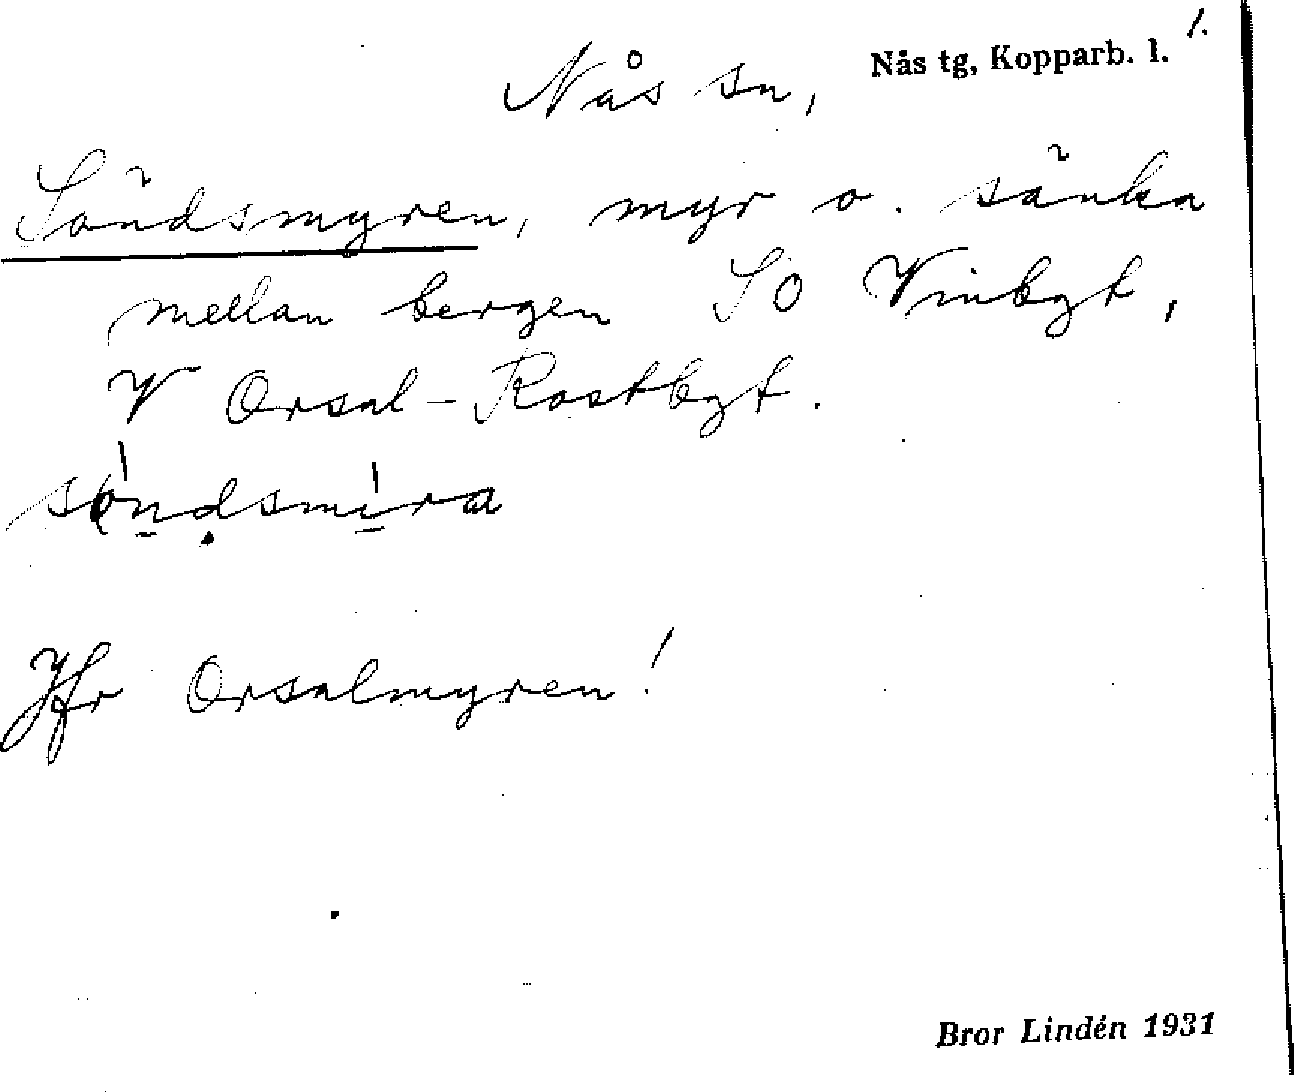 Nås tg, Kopparb. l. 1.
Nås sn,
Söndsmyren, myr o. sänka
mellan bergen SO Vinbgt,
V Orsal-Rostbgt.
söndsmira
Jfr Orsalmyren!
Bror Lindén 1931